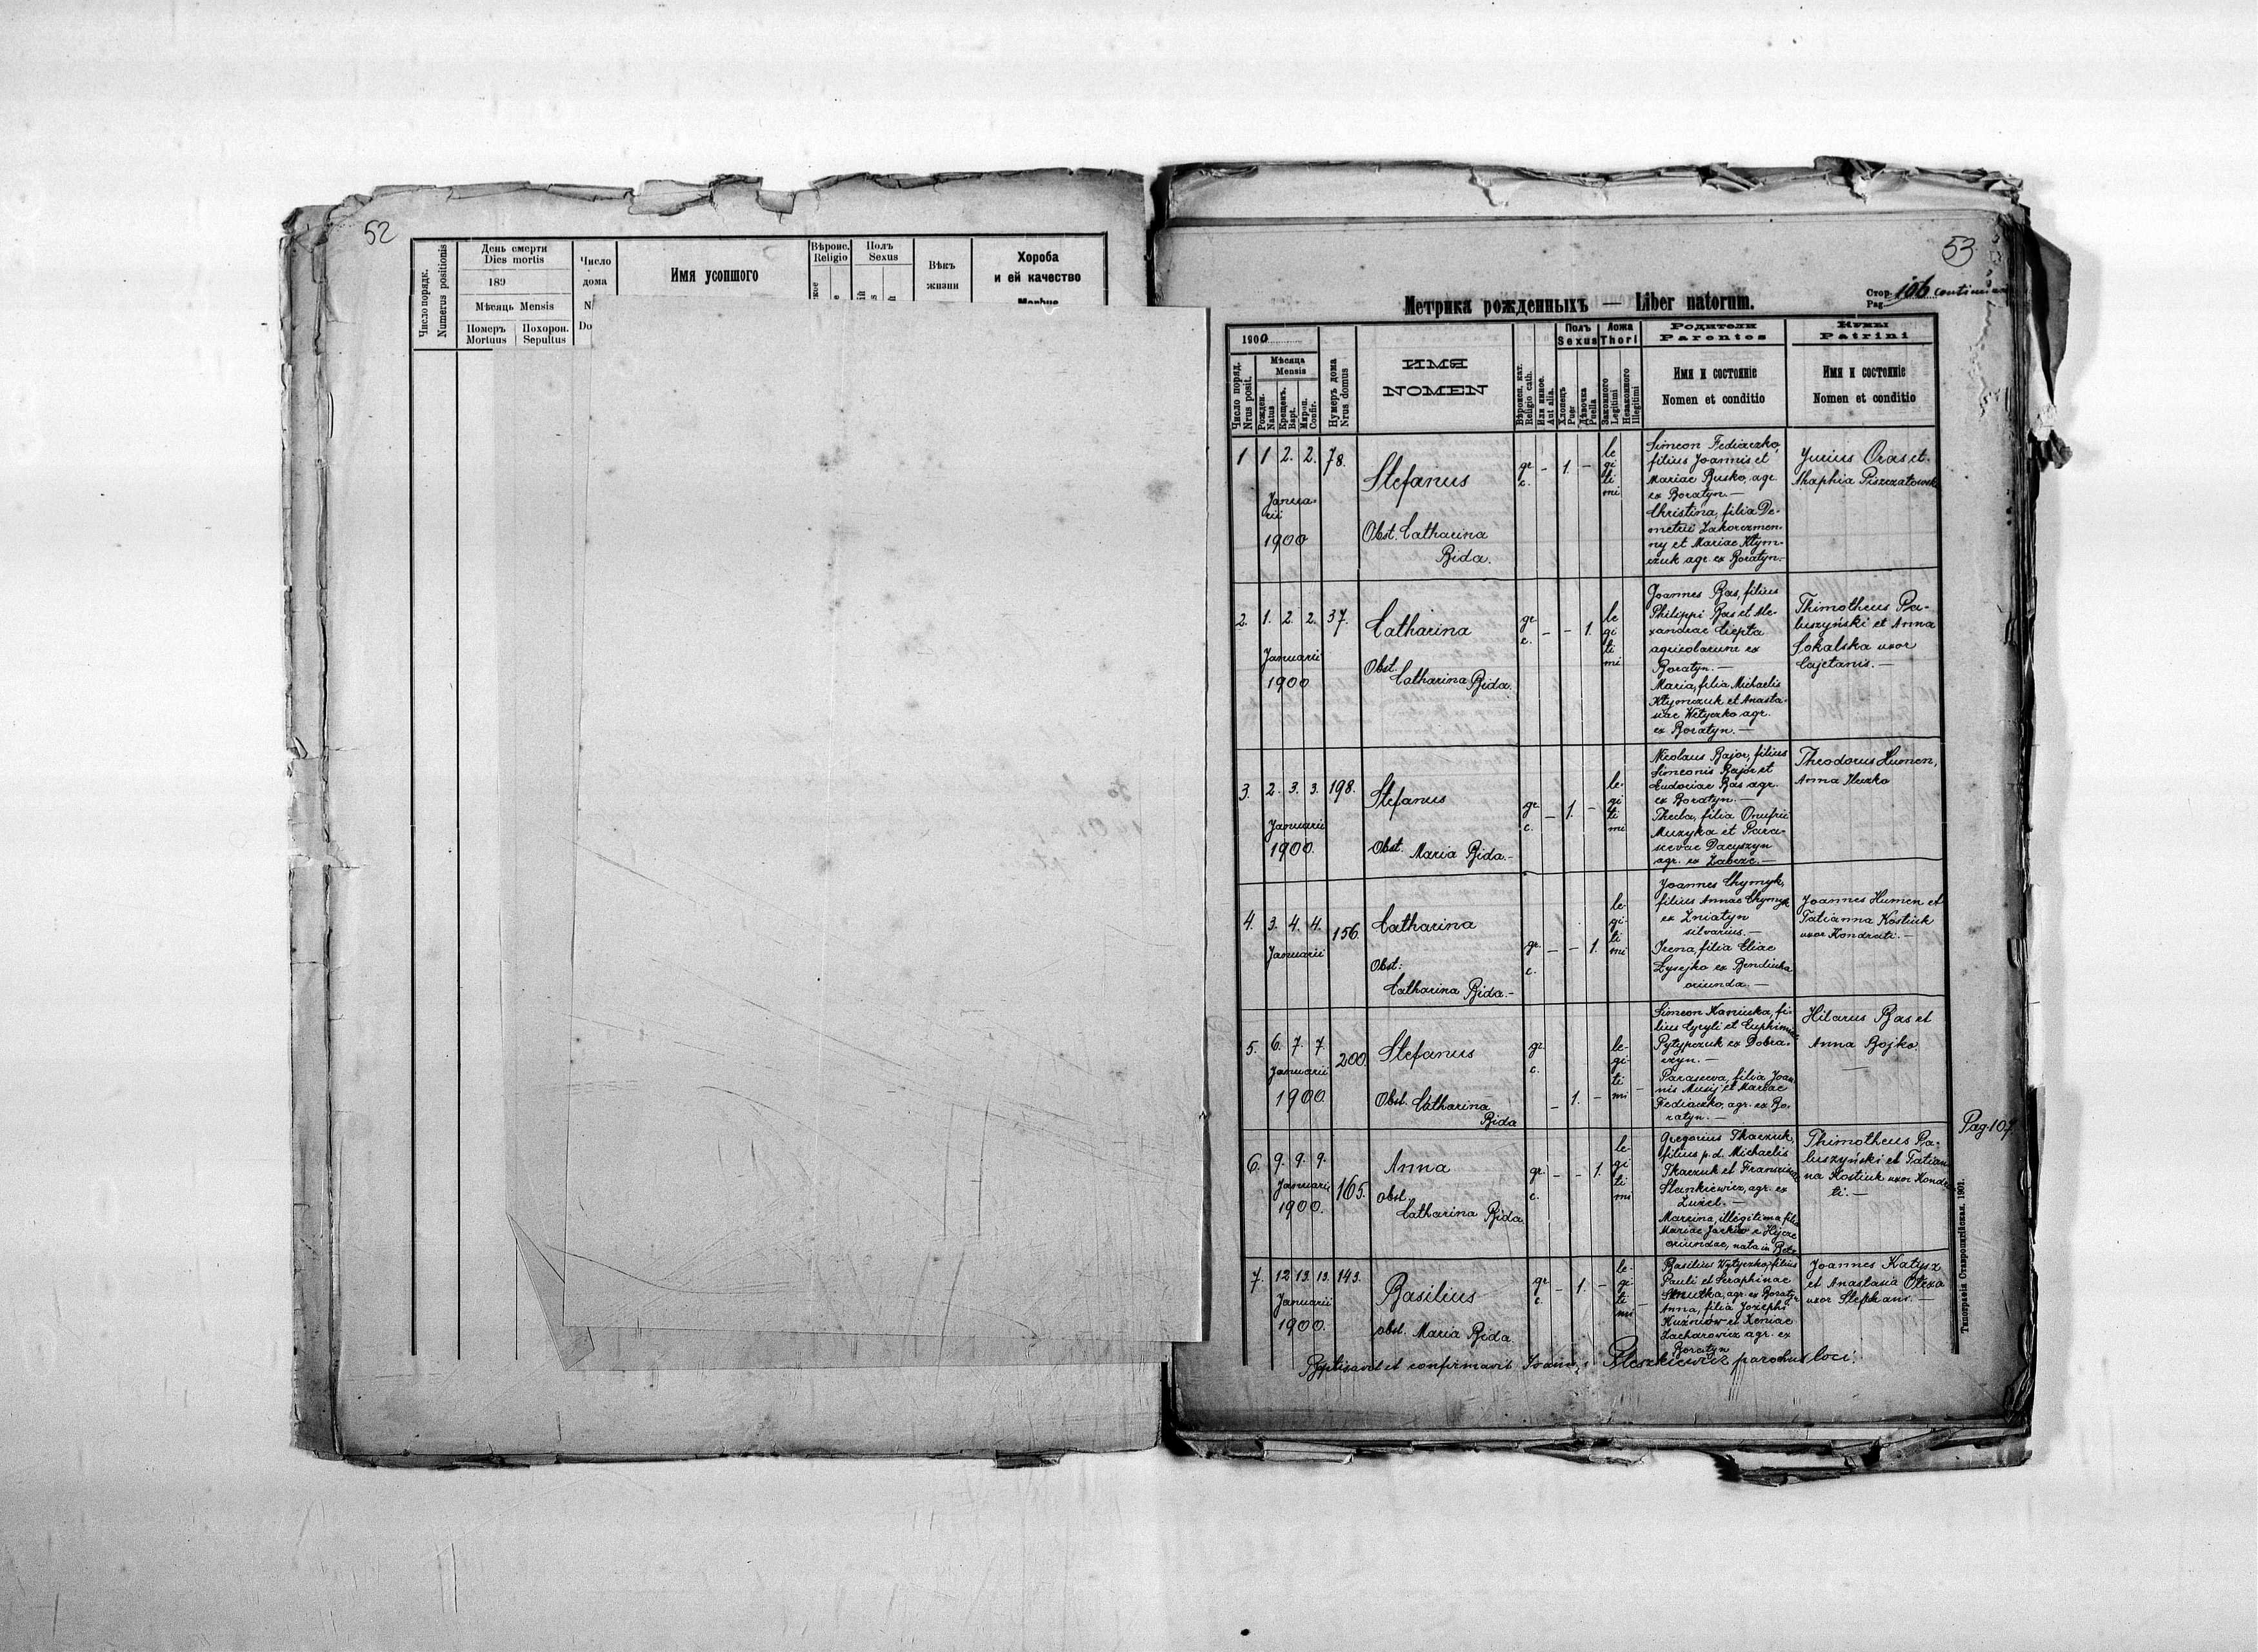 52
Число порядк.
Numerus positionis
День смерти
Dies mortis
189
Мѣсяць Mensis
Померъ
Mortuus
Похорон.
Sepultus
Число
дома
Имя усопшого
Вѣроис.
Religio
Полъ
Sexus
Вѣкъ
жизни
Хороба
и ей качество
53
Метрика рожденныхъ — Liber natorum.
Стор.
Pag.
106
1900
Число поряд.
Nrus posit.
Мѣсяца
Mensis
Рожден.
Natus
Крещенъ.
Bapt.
Мѵроп.
Confir.
Нумеръ дома
Nrus domus
ИМЯ
NOMEN
Вѣроисп. кат.
Religio cath.
Или инное.
Aut alia.
Полъ
Sexus
Хлопець
Puer
Дѣвочка
Puella
Ложа
Thori
Законного
Legitimi
Незаконного
Illegitimi
Родители
Parentes
Имя и состояніе
Nomen et conditio
Кумы
Patrini
Имя и состояніе
Nomen et conditio
1 1 2. 2. 78.
Janua-
rii
1900
Stefanus
Obst. Catharina
Bida.
gr.
c.
– 1. –
le
gi
ti
mi
Simeon Fediaczko,
filius Joannis et
Mariae Busko, agr.
ex Boratyn. —
Christina, filia De-
metrii Zakorczmen-
ny et Mariae Klym-
czuk agr. ex Boratyn. —
Jurius Oras et
2. 1. 2. 2. 37.
Januarii
1900
Catharina
Obst.
Catharina Bida.
gr.
c.
– – 1.
le
gi
ti
mi
Joannes Bas, filius
Philippi Bas et Ale-
xandrae Ciepla
agricolarum ex
Boratyn. —
Maria, filia Michaelis
Klymczuk et Anasta-
siae Wetyczko agr.
ex Boratyn. —
Thimotheus Pa-
luszyński et Anna
Sokalska uxor
Cajetanis. —
3. 2. 3. 3. 198.
Januarii
1900.
Stefanus
Obst. Maria Bida. –
gr.
c.
– 1. –
le-
gi
ti
mi
Nicolaus Bajor, filius
Simeonis Bajor et
Eudociae Bas agr.
ex Boratyn. —
Thecla, filia Onufrii
Muzyka et Para-
scevae Dacyszyn
agr. ex Zabcze. —
Theodorus Humen,
Anna
4. 3. 4. 4. 156.
Januarii
Catharina
Obst:
Catharina Bida. –
gr.
c.
– – 1.
le-
gi-
ti
mi
Joannes Chymyk,
filius Annae Chymyk
ex Zniatyn
silvarius. —
Irena, filia Eliae
Łysejko ex Bendiucha
oriunda. —
Joannes Humen et
Tatianna Kostiuk
uxor Kondrati. –
5. 6. 7. 7. 200.
Januarii
1900.
Stefanus
Obst. Catharina
Bida
gr.
c.
– 1. –
le-
gi-
ti
mi
Simeon Kaniuka, fi-
lius Cyryli et Euphimiae
Pylypczuk ex Dobra-
czyn. —
Parasceva, filia Joan-
nis Musij et Mariae
Fediaczko, agr. ex Bo-
ratyn. —
Hilarus Bas et
Anna Bojko.
6. 9. 9. 9. 165.
Januarii
1900.
Anna
obst.
Catharina Bida.
gr.
c.
– – 1.
le-
gi
ti
mi
Gregorius Tkaczuk,
filius p. d. Michaelis
Tkaczuk et Franciscae
Stankiewicz, agr. ex
Zuzel. —
Marcina, illegitima filia
Mariae
oriundae, nata in
Thimotheus Pa-
luszyński et Tatian-
na Kostiuk uxor Kondra-
ti. —
Pag. 107.
7. 12. 13. 13. 143.
Januarii
1900.
Basilius
obst. Maria Bida.
gr.
c.
– 1. –
le-
gi-
ti
mi
Basilius Wetyczko, filius
Pauli et Seraphinae
agr. ex Boratyn
Anna, filia Josephi
Kuzniow et Xeniae
Zacharowicz agr. ex
Boratyn
Joannes Katysz
et Anastasia Olexa
uxor Stephani. —
Baptisavit et confirmavit Joannes Pleszkiewicz parochus loci.
Типографія Ставропигійская. 1901.